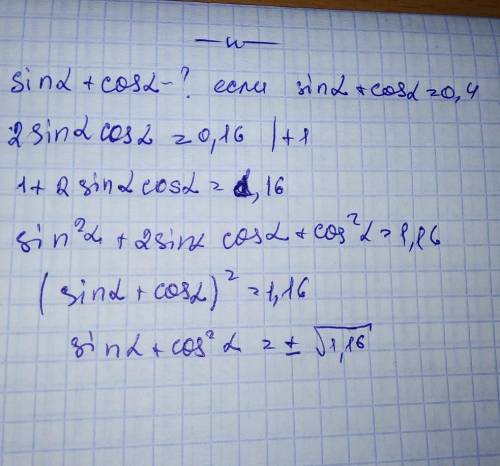 —и—
sinα + cosα - ? если sinα + cosα = 0,4
2 sinα cosα = 0,16 | + 1
1 + 2 sinα cosα = 1,16
sin²α + 2sinα cosα + cos²α = 1,16
(sinα + cosα)² = 1,16
sinα + cos²α = ± √1,16